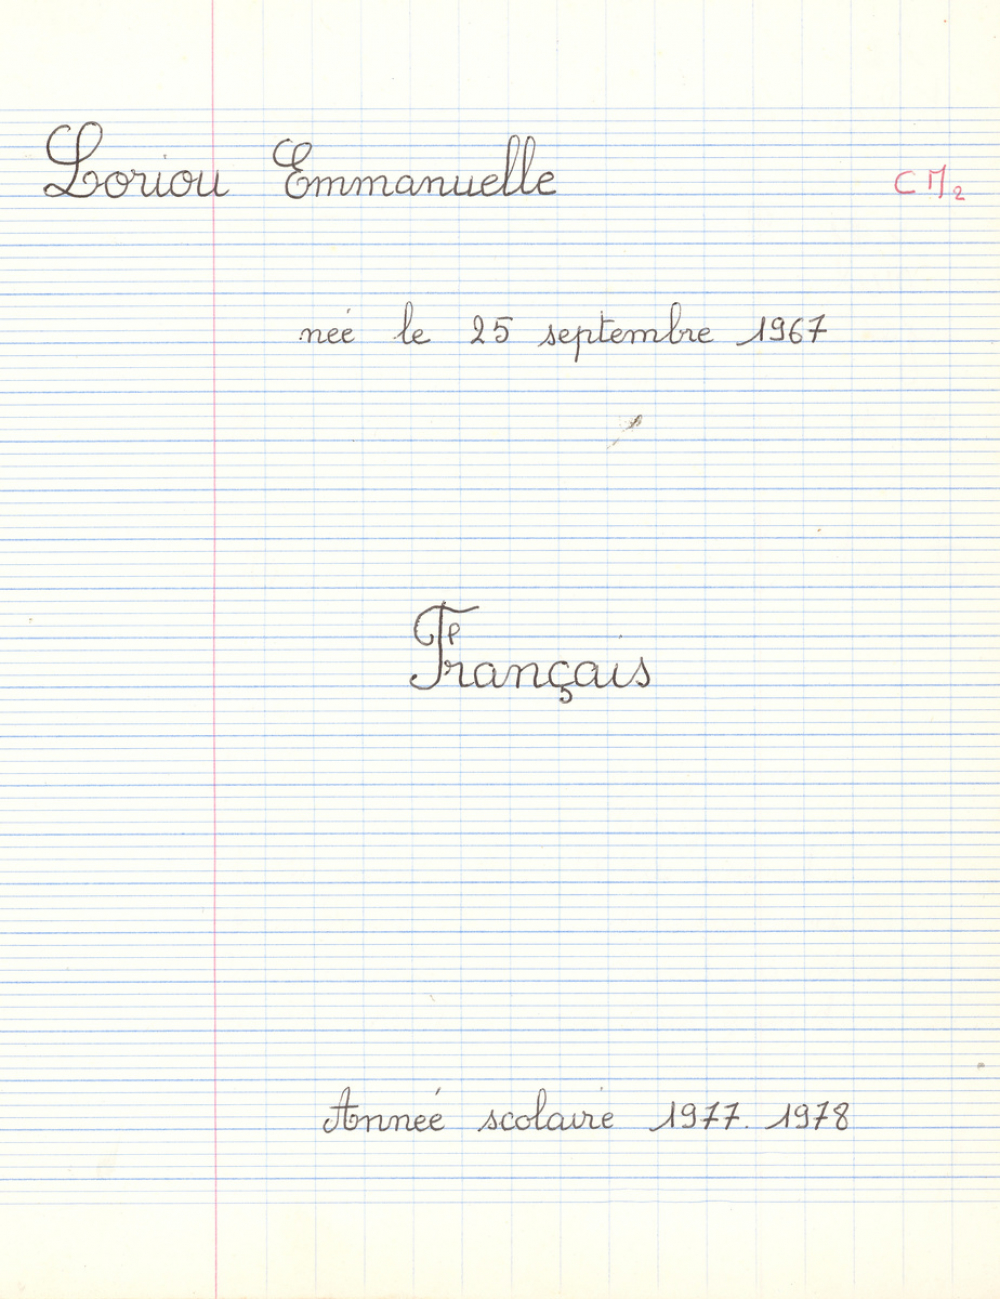 Loriou Emmanuelle CM2
née le 25 septembre 1967
Français
Année scolaire 1977. 1978